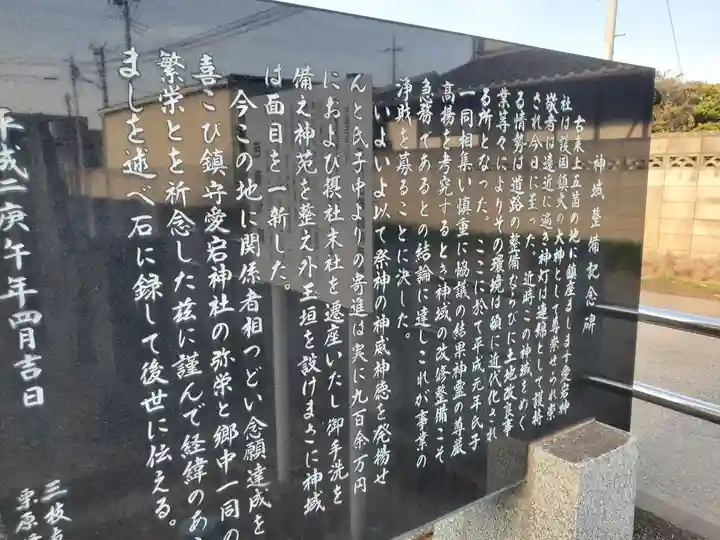 神域整備記念碑
古来上五箇の地に鎮座まします愛宕神
社は護国鎮火の大神として尊崇せられ崇
敬者は遠近に遍き神灯は連綿として護持
され今日に至った。近時この神域をめぐ
る情勢は道路の整備ならびに土地改良事
業等々によりその環境は頓に近代化され
る所となった。ここに於て平成元年氏子
一同相集い慎重に協議の結果神霊の尊厳
高揚を考究するとき神域の改修整備こそ
急務であるとの結論に達しこれが事業の
浄財を募ることに決した。
いよいよ以て祭神の神威神徳を発揚せ
んと氏子中よりの寄進は実に九百余万円
におよび摂社末社を遷座いたし御手洗を
備え神苑を整え外玉垣を設けまさに神域
は面目を一新した。
今この地に関係者相つどい念願達成を
喜こび鎮守愛宕神社の弥栄と郷中一同の
繁栄とを祈念した茲に謹んで経緯のあ
ましを述べ石に録して後世に伝える。
平成二庚午年四月吉日
三枝
栗原